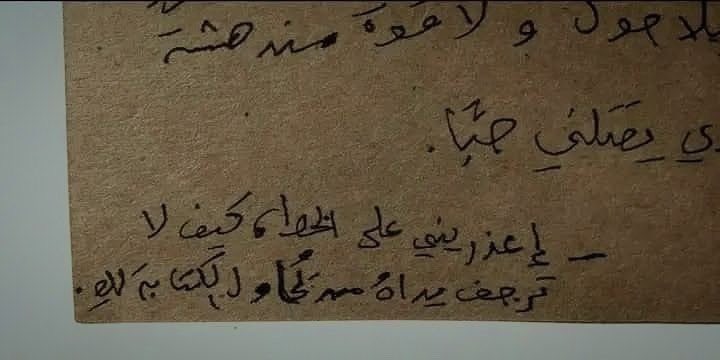 بلا حول و لا قوة من دهشة
ي يقتلني حبًا.
– إعذريني على الخط، كيف لا
ترجف يداهُ من يُحاول الكتابة لكِ.